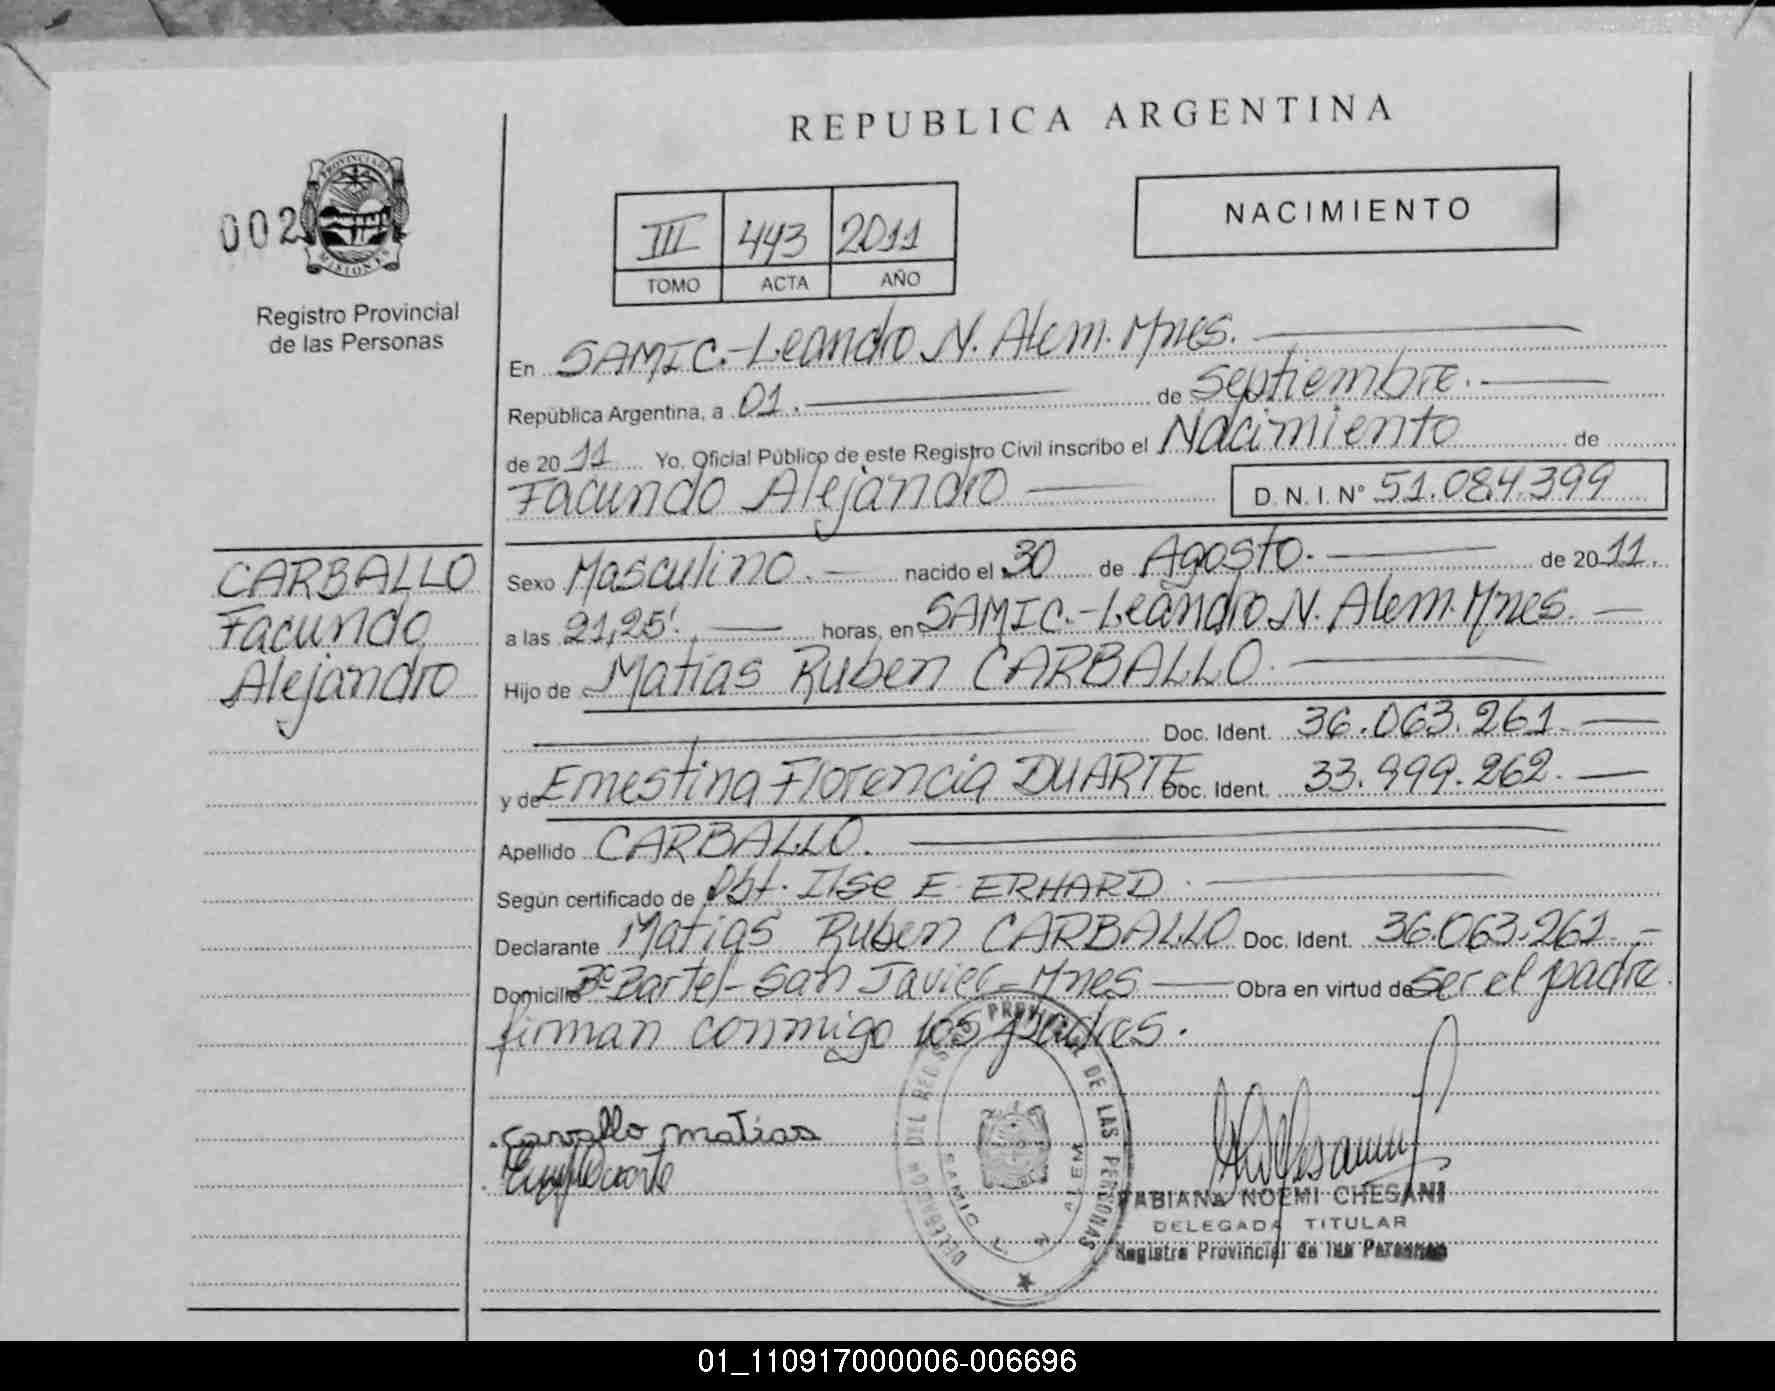 REPUBLICA ARGENTINA
002
PROVINCIA DE
MISIONES
Registro Provincial
de las Personas
III 443 2011
TOMO ACTA AÑO
NACIMIENTO
En SAMIC.-Leandro N. Alem. Mnes.
República Argentina, a 01. de Septiembre.
de 20 11 Yo, Oficial Público de este Registro Civil inscribo el Nacimiento de
Facundo Alejandro D.N.I. Nº 51.084.399
CARBALLO
Facundo
Alejandro
Sexo Masculino. nacido el 30 de Agosto. de 20 11.
a las 21,25'. horas, en SAMIC.-Leandro N. Alem. Mnes.
Hijo de Matias Ruben CARBALLO.
Doc. Ident. 36.063.261.
y de Ernestina Florencia DUARTE Doc. Ident. 33.999.262.
Apellido CARBALLO.
Según certificado de Obt. Ilse E. ERHARD.
Declarante Matias Ruben CARBALLO Doc. Ident. 36.063.261.-
Domicilio Bº Bartel-San Javier-Mnes Obra en virtud de ser el padre.
firman conmigo los padres.
Carvallo matias
Duarte
DELEGACION DEL REGISTRO PROVINCIAL DE LAS PERSONAS
SAMIC L. N. ALEM
FABIANA NOEMI CHESANI
DELEGADA TITULAR
Registro Provincial de las Personas
01_110917000006-006696